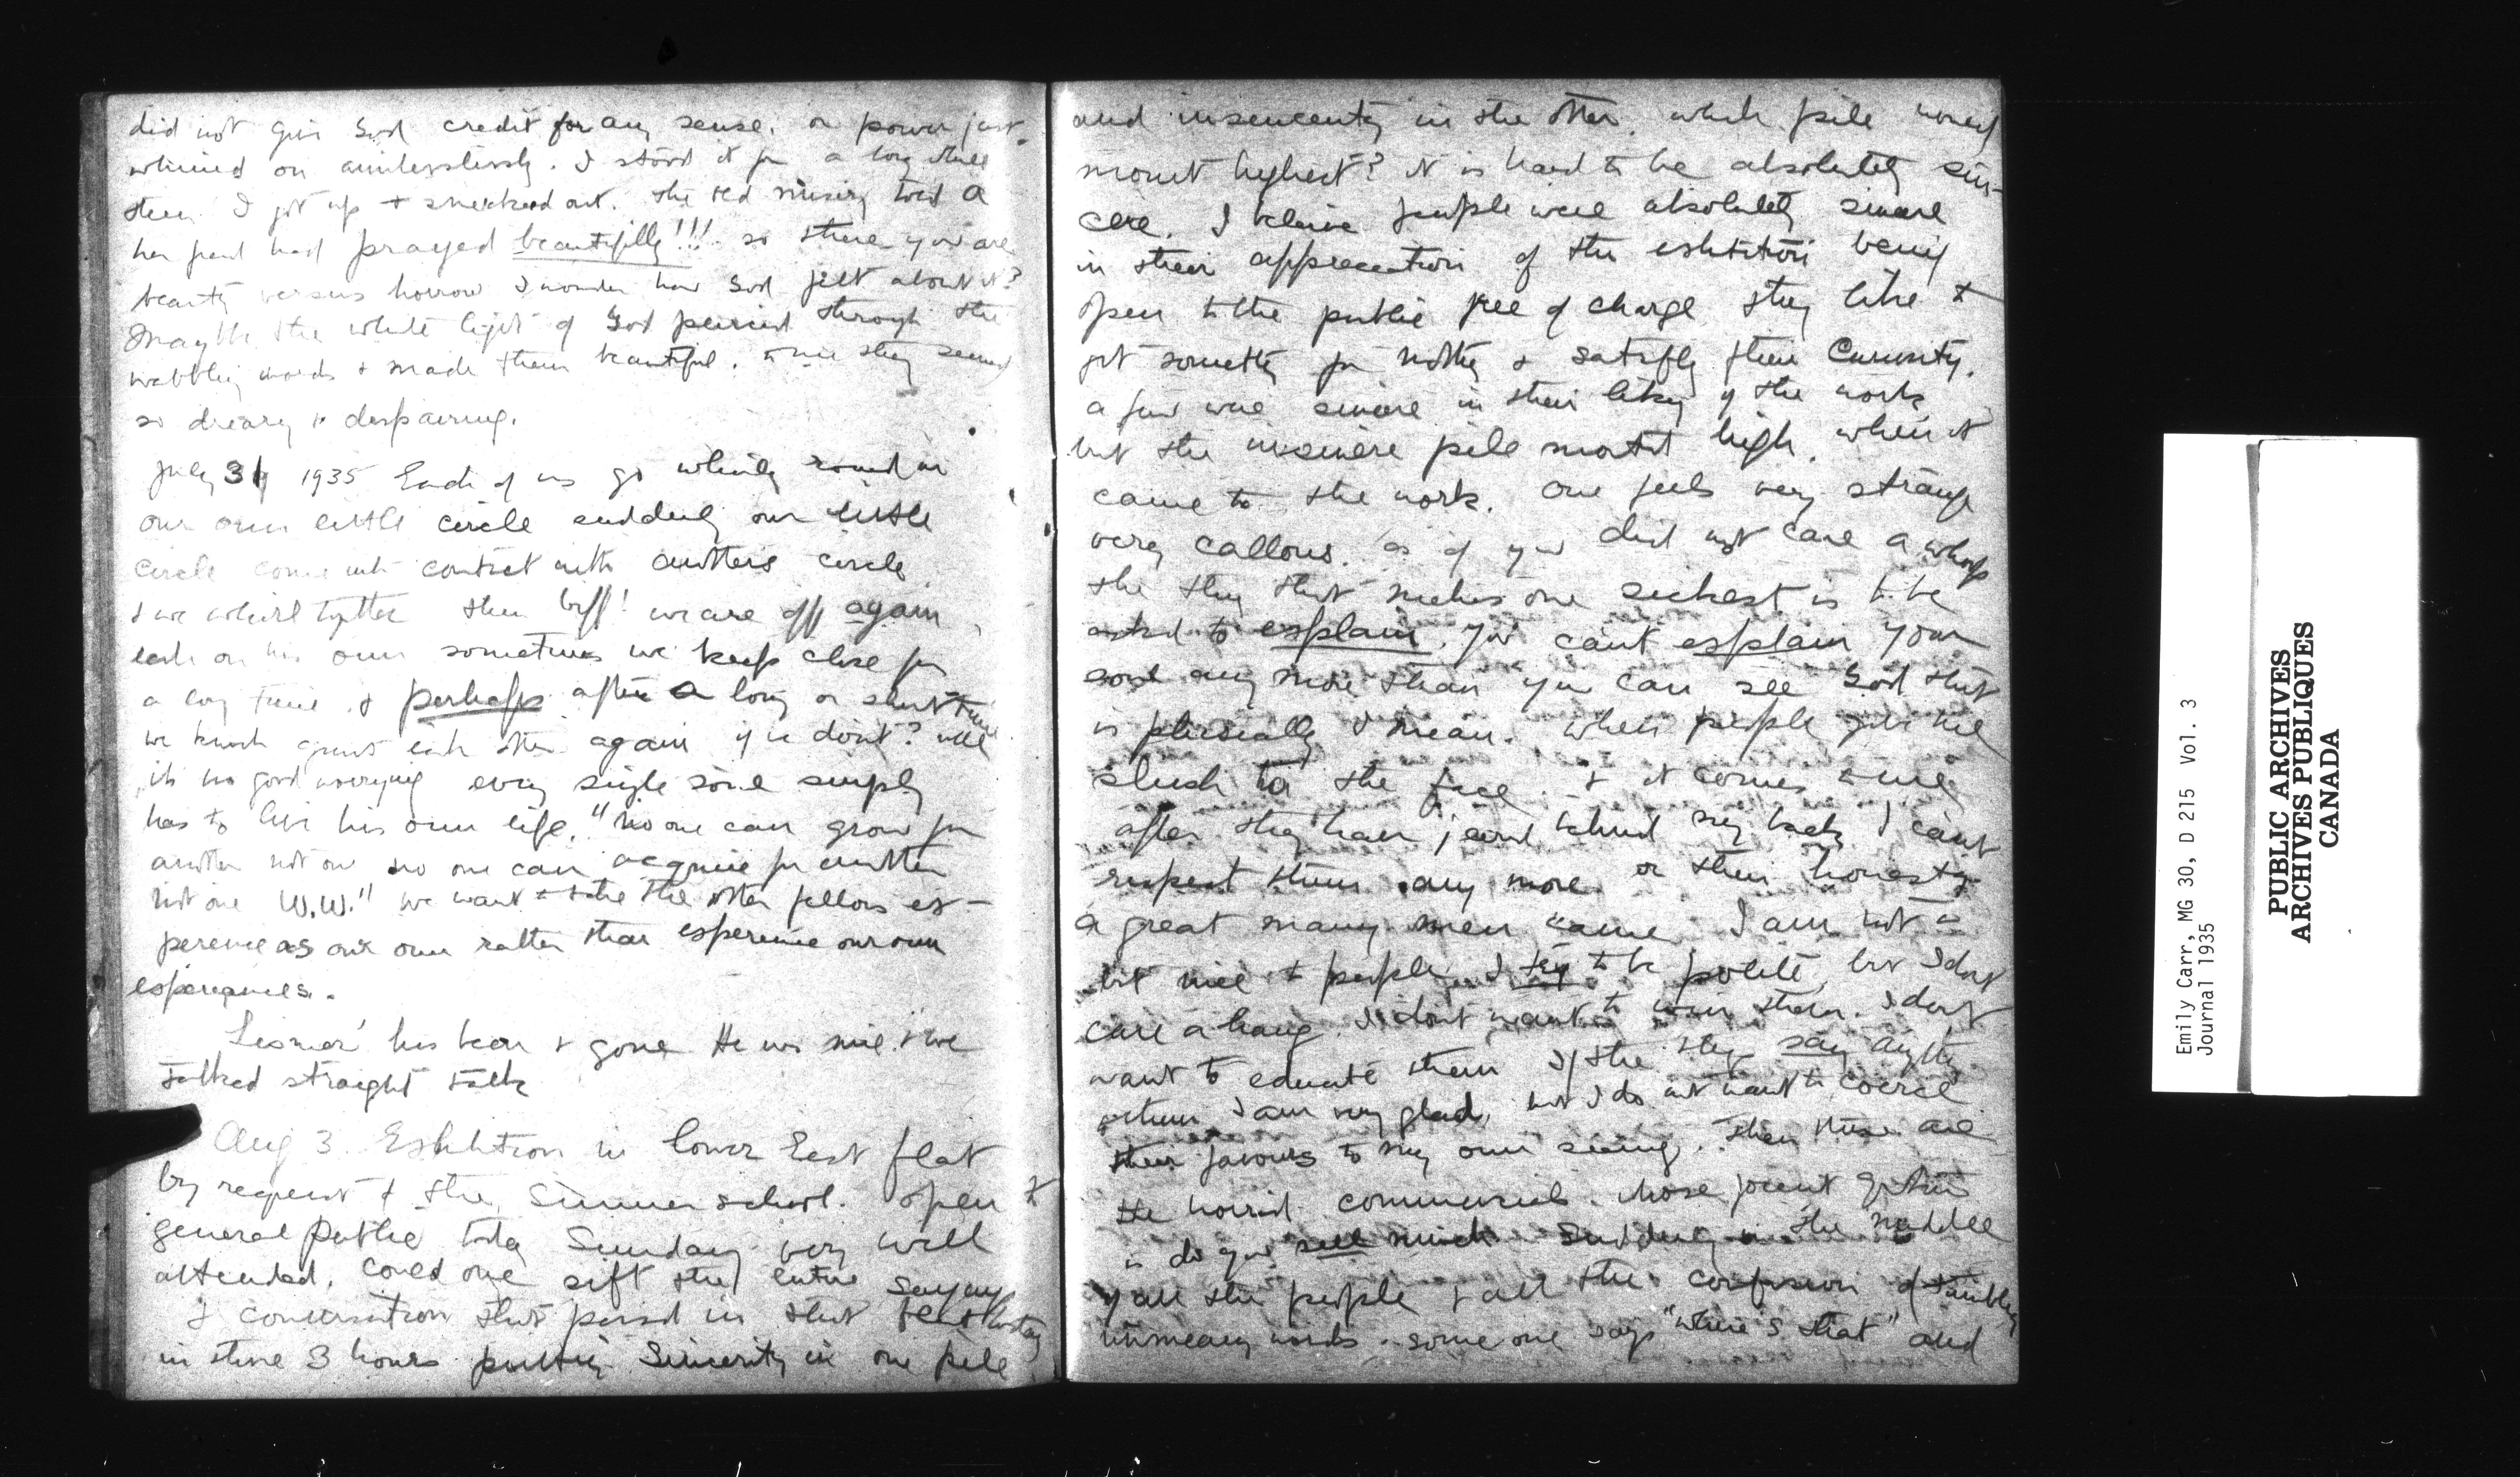 did not give God credit for any sense. or power just
whined on aimlesslessly. I stood it for a long while
then I got up & sneeked out. the red misery told a
her friend had prayed beautifully!!! so there you are
beauty versus horror I wonder how God felt about it?
Maybe the white light of God pierced through the
wabbly words & made them beautiful. to me they seemed
so dreary & despairing.
July 31 1935 Each of us go whirling round in
our own little circle suddenly our little
circle come into contact with anothers circle
& we whirl together then biff! we are off again
each on his own sometimes we keep close for
a long time & perhaps after a long or short time
we knock against each other again if we dont? well
its no good worrying every single soul simply
has to live his own life. "no one can grow for
another not one no one can acquire for another
not one W.W." we want to take the other fellows ex-
perence as our own rather than experence our own
experiences.
Lismer has been & gone He was nice & we
talked straight talk
Aug 3 Exhibition in lower East flat
by request of the Summer school. open to
general public today Sunday very well
attended. Could one sift the entire saying
& conversation that passed in that flat
in those 3 hours putting Sincerity in one pile
and insencerity in the other. which pile would
mount highest? it is hard to be absolutely sin-
cere. I believe people were absolutely sincere
in their appreceation of the exhibition being
open to the public free of charge they like to
get something for nothing & satisfy their Curiosity.
a few were sincere in their liking of the work
but the insincere pile mounted high. when it
came to the work. One feels very strange
very callous. as if you did not care a whoop
the thing that makes one sickest is to be
asked to explain. You cant explain your
soul any more than you can see God that
is phisically I mean. When people give me
slush to the face & it comes to me
after they have jeered behind my back I cant
respect them any more or their honesty
a great many men came I am not a
bit nice to people. I try to be polite but I dont
care a hang. I dont want to win them. I dont
want to educate them If the things say anything
to them I am very glad, but I do not want to coerce
their favours to my own seeing. Then there are
the horrid commercial. whose
is do you sell much Suddenly in the middle
of all the people & all the confusion of tumbling
unmeaning words some one says "where's that" and
Emily Carr, MG 30, D 215 Vol. 3
Journal 1935
PUBLIC ARCHIVES
ARCHIVES PUBLIQUES
CANADA